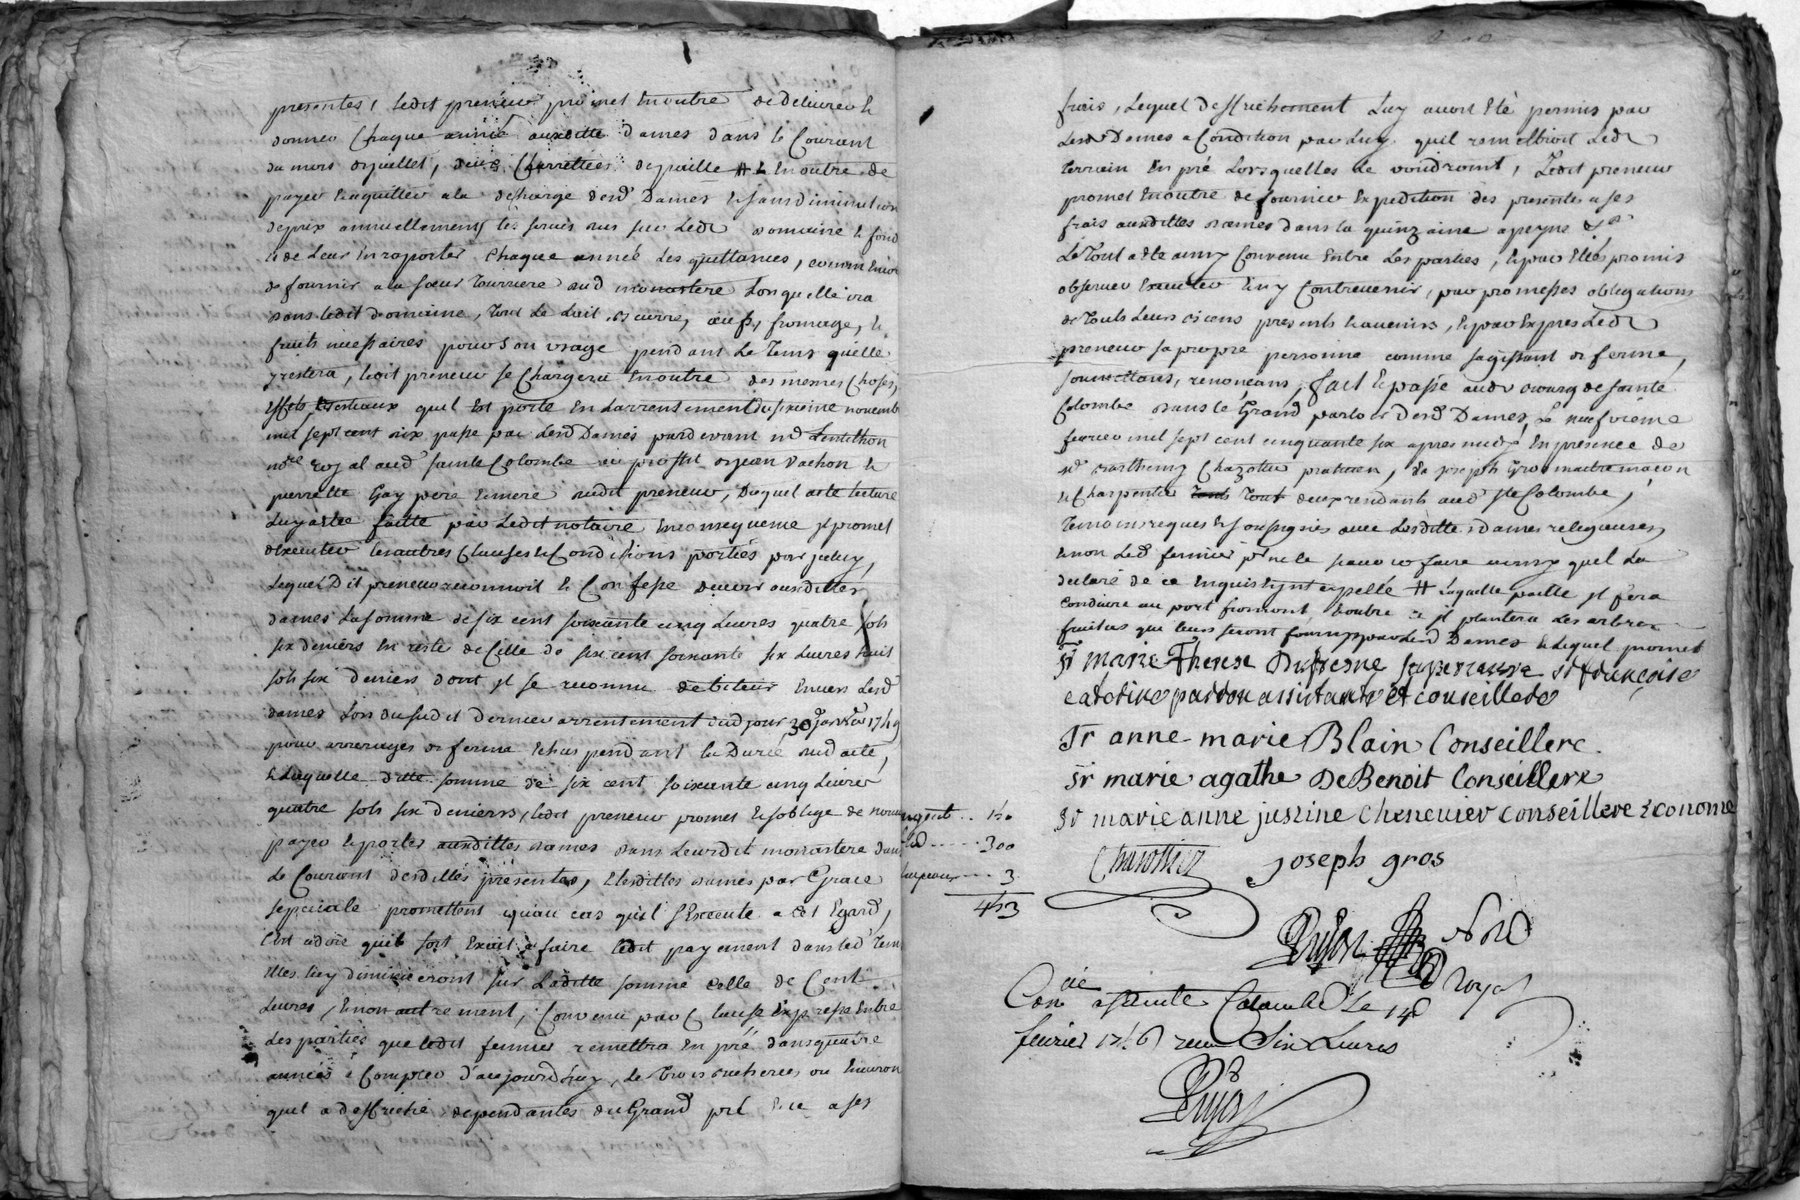 presentes, ledit preneur promet En outre de delivrer Et
donner Chaque année auxditte dames dans le Courant
du mois de juillet, deux Charrettées de paille # Et En outre de
payer Et aquitter a la decharge desd Dames Et sans diminution
de prix annuellement les servis dus sur Led domaine Et fond
Et de Leur En raporter Chaque année Les quittances, comm'Encor
de fournir a la sœur tourriere dud monastere Lors quelle ira
dans ledit domaine, tout Le Lait, beurre, œufs, fromage, Et
fruits necessaires pour son usage pendant Le tems qu'elle
y restera, ledit preneur se Chargera En outre des mesmes Choses,
Effets, Bestiaux quil Est porté En Larrentement du sixieme novemb
mil sept cent six passé par Lesd Dames pardevant Me Lentillon
nore Royal aud sainte Colombe au profit de jean vachon Et
pierrette Gay pere Et mere dudit preneur, Duquel acte lecture
Luy a eté faitte par Ledit notaire, En consequence il promet
d'Executer les autres Clauses Et Conditions portées par jceluy,
Lequel Dit preneur reconnoit Et Confesse devoir auxdittes
dames La somme de six cent soixante cinq Livres quatre sols
six deniers En reste de Celle de six cent soixante six Livres huit
sols six deniers dont il se reconnu debiteur Envers Lesd
dames Lors dudit dernier arrentement dud jour 30 Janvier 1749
pour arrerages de ferme Echus pendant la Durée dud acte,
Laquelle ditte somme de six cent soixante cinq Livres
quatre sols six deniers, ledit preneur promet Et s'oblige de nouveau
payer Et porter auxdittes dames dans Leurdit monastere dans
Le Courant desdittes presentes, Et lesdittes dames par Grace
speciale promettent qu'au cas qu'il s'Execute a cet Egard,
C'est a dire quil soit Exact a faire ledit payement dans led Tems
Elles luy diminueront sur Laditte somme celle de Cent
Livres, Et non autrement, Convenu par Clause Expresse Entre
Les parties que ledit fermier remettra En pré dans quatre
années a Compter d'aujourd'huy, Le trois bicherées ou Environ
quil a deffriché dependantes du Grand pré Et ce a ses
frais, Lequel deffrichement Luy avoit Eté permis par
Lesd Dames a Condition par Luy quil remettroit Led
terrain En pré Lorsquelles le voudroint, Ledit preneur
promet En outre de fournir Expedition des presentes a ses
frais auxdittes dames dans la quinzaine a peyne &a
Le Tout a eté ainsy Convenu Entre Les parties, Et par Elles promis
observer Executer Et n'y Contrevenir, par promesses obligations
de Touts Leurs biens presents Et avenirs, Et par Expres Led
preneur sa propre personne comme s'agissant de ferme,
soumettans, renonçans, fait Et passé aud bourg de sainte
Colombe dans le Grand parloir desd Dames, Le neufvieme
fevrier mil sept cent cinquante six apres midy En presence de
sr Barthemy Chazottier praticien, Et de joseph Gros maitre maçon
Et Charpentier Tous deux residants aud Ste Colombe,
Temoins requis Et soussignés avec Lesdittes dames religieuses,
Et non Led fermier pr ne le sçavoir faire ainsy quil L'a
declaré de ce Enquis Et jnterpellé # Laquelle paille il fera
conduire au port fromont, Et outre ce il plantera Les arbres
fruitiers qui luis seront fournis par Lesd Dames Lequel promet
Sr marie Therese Dufresne superieure sr françoise
catetine pardon assistante et conseillere
Sr anne-marie Blain Conseillere.
Sr marie agathe DeBenoit Conseillere
Sr marie anne justine Chenevier conseillere Econome
.. 150
..... 300
.... 3
453
Chazottier joseph gros
Pujol Nore
Royal
Conlé a sainte Colombe Le 14
fevrier 1756 reçu Six Livres
Pujol